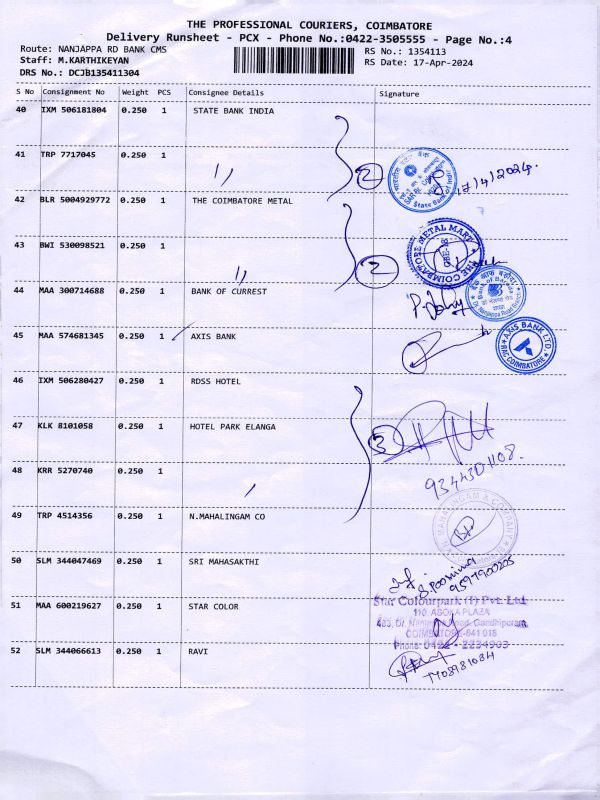 THE PROFESSIONAL COURIERS, COIMBATORE
Delivery Runsheet - PCX - Phone No.:0422-3505555 - Page No.:4
Route: NANJAPPA RD BANK CMS RS No.: 1354113
Staff: M.KARTHIKEYAN RS Date: 17-Apr-2024
DRS No.: DCJB135411304
S No Consignment No Weight PCS Consignee Details Signature
40 IXM 506181804 0.250 1 STATE BANK INDIA
41 TRP 7717045 0.250 1
2 State Bank of India
17/4/2024
42 BLR 5004929772 0.250 1 THE COIMBATORE METAL
THE COIMBATORE METAL MART
43 BWI 530098521 0.250 1
2
44 MAA 300714688 0.250 1 BANK OF CURREST
Bank of Baroda
45 MAA 574681345 1 AXIS BANK
AXIS BANK LTD
COIMBATORE
46 IXM 506280427 0.250 1 RDSS HOTEL
47 KLK 8101058 0.250 1 HOTEL PARK ELANGA
3
48 KRR 5270740 0.250 1
49 TRP 4514356 0.250 1 N.MAHALINGAM CO
MAHALINGAM & COMPANY
50 SLM 344047469 0.250 1 SRI MAHASAKTHI
S. Poornima
9597900205
51 MAA 600219627 0.250 1 STAR COLOR
Star Colourpark (I) Pvt. Ltd
110, ASOKA PLAZA
483, Dr. Nanjappa Road, Gandhipuram
COIMBATORE-641 018
Phone: 0422 - 2234903
52 SLM 344066613 0.250 1 RAVI